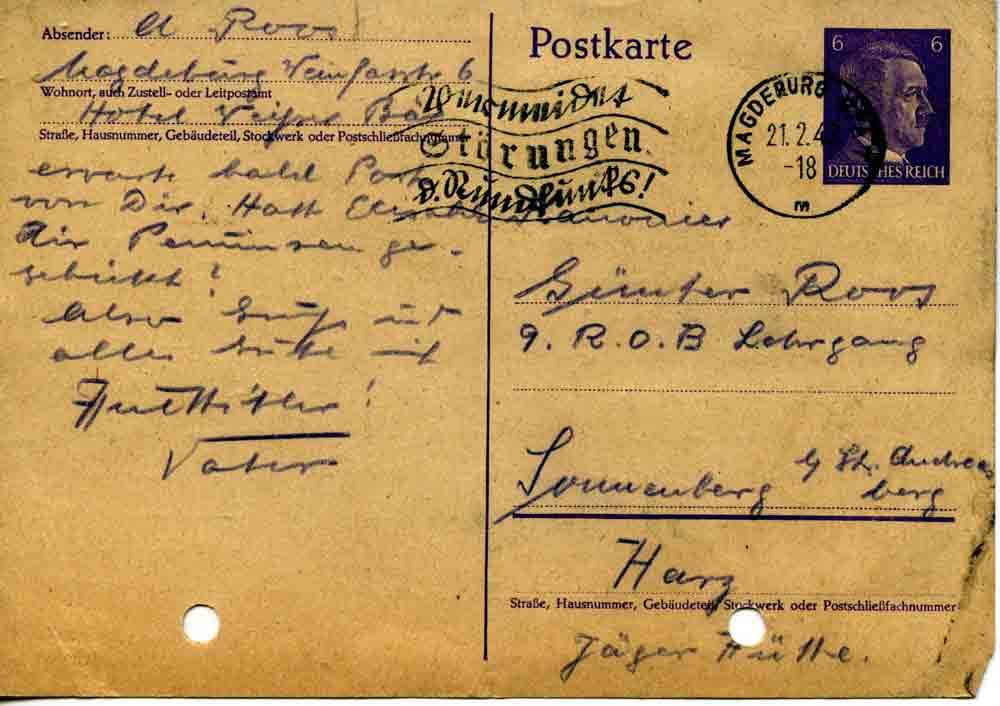 Absender: A Roos
Magdeburg 6
Wohnort, auch Zustell- oder Leitpostamt
Hotel
Straße, Hausnummer, Gebäudeteil, Stockwerk oder Postschließfachnummer
erwarte bald Post
von Dir. Hast
Dir ge-
schickt!
Also Gruß und
alles Gute mit
Heil Hitler!
Vater
Postkarte
Vermeidet
Störungen
d. Rundfunks!
MAGDEBURG
21.2.4
-18
m
6 6
DEUTSCHES REICH
Kanonier
Günter Roos
9. R.O.B Lehrgang
Sonnenberg b/ St. Andreas
berg
Harz
Straße, Hausnummer, Gebäudeteil, Stockwerk oder Postschließfachnummer
Jäger Hütte.